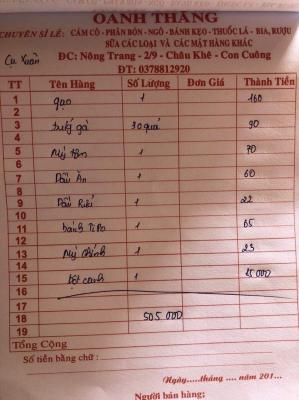 OANH THẮNG
CHUYÊN SỈ LẺ: CÁM CÒ - PHÂN BÓN - NGÔ - BÁNH KẸO - THUỐC LÁ - BIA, RƯỢU
SỮA CÁC LOẠI VÀ CÁC MẶT HÀNG KHÁC
ĐC: Nông Trang - 2/9 - Châu Khê - Con Cuông
ĐT: 0378812920
TT Tên Hàng Số Lượng Đơn Giá Thành Tiền
1 gạo 1 160
2
3 trứng gà 30 quả 90
4
5 Mỳ tôm 1 70
6
7 Dầu Ăn 1 60
8
9 1 22
10
11 bánh TiPo 1 65
12
13 Mỳ chính 1 23
14
15 bột canh 1 15 000
16
17
18 505 000
19
Tổng Cộng
Số tiền bằng chữ :
Ngày.....tháng .... năm 201...
Người bán hàng: